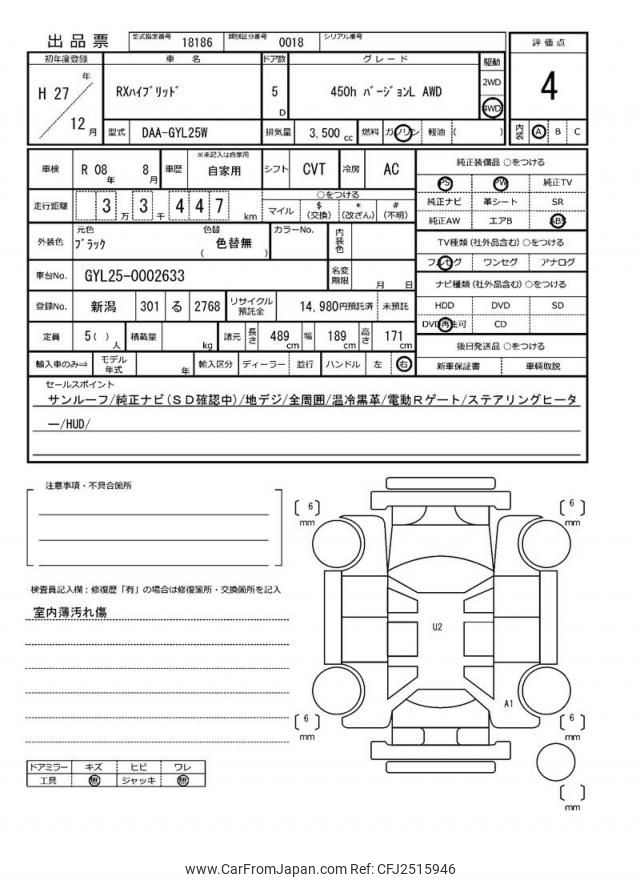 出品票 型式指定番号 18186 類別区分番号 0018 シリアル番号
評価点
4
内装 A B C
初年度登録 車名 ドア数 グレード 駆動
H 27 年 12 月
RXハイブリッド 5 D 450h バージョンL AWD 2WD 4WD
型式 DAA-GYL25W 排気量 3,500 cc 燃料 ガソリン 軽油 ( )
車検 R 08 年 8 月 車歴 ※未記入は自家用 自家用 シフト CVT 冷房 AC
走行距離 3 万 3 千 4 4 7 km
○をつける
マイル $ (交換) * (改ざん) # (不明)
外装色 元色 ブラック 色替 ( 色替無 ) カラーNo. 内装色
車台No. GYL25-0002633 名変期限 月 日
登録No. 新潟 301 る 2768 リサイクル預託金 14,980円預託済 未預託
定員 5( ) 人 積載量 kg 諸元 長さ 489 cm 幅 189 cm 高さ 171 cm
輸入車のみ⇒ モデル年式 年 輸入区分 ディーラー 並行 ハンドル 左 右
純正装備品 ○をつける
PS PW 純正TV
純正ナビ 革シート SR
純正AW エアB ABS
TV種類(社外品含む)○をつける
フルセグ ワンセグ アナログ
ナビ種類(社外品含む)○をつける
HDD DVD SD
DVD再生可 CD
後日発送品 ○をつける
新車保証書 車輌取説
セールスポイント
サンルーフ/純正ナビ(SD確認中)/地デジ/全周囲/温冷黒革/電動Rゲート/ステアリングヒータ
ー/HUD/
注意事項・不具合箇所
検査員記入欄：修復歴「有」の場合は修復箇所・交換箇所を記入
室内薄汚れ傷
ドアミラー キズ ヒビ ワレ
工具 無 ジャッキ 無
[ 6 ] mm
[ 6 ] mm
U2
A1
[ 6 ] mm
[ 6 ] mm
[ ] mm
www.CarFromJapan.com Ref: CFJ2515946